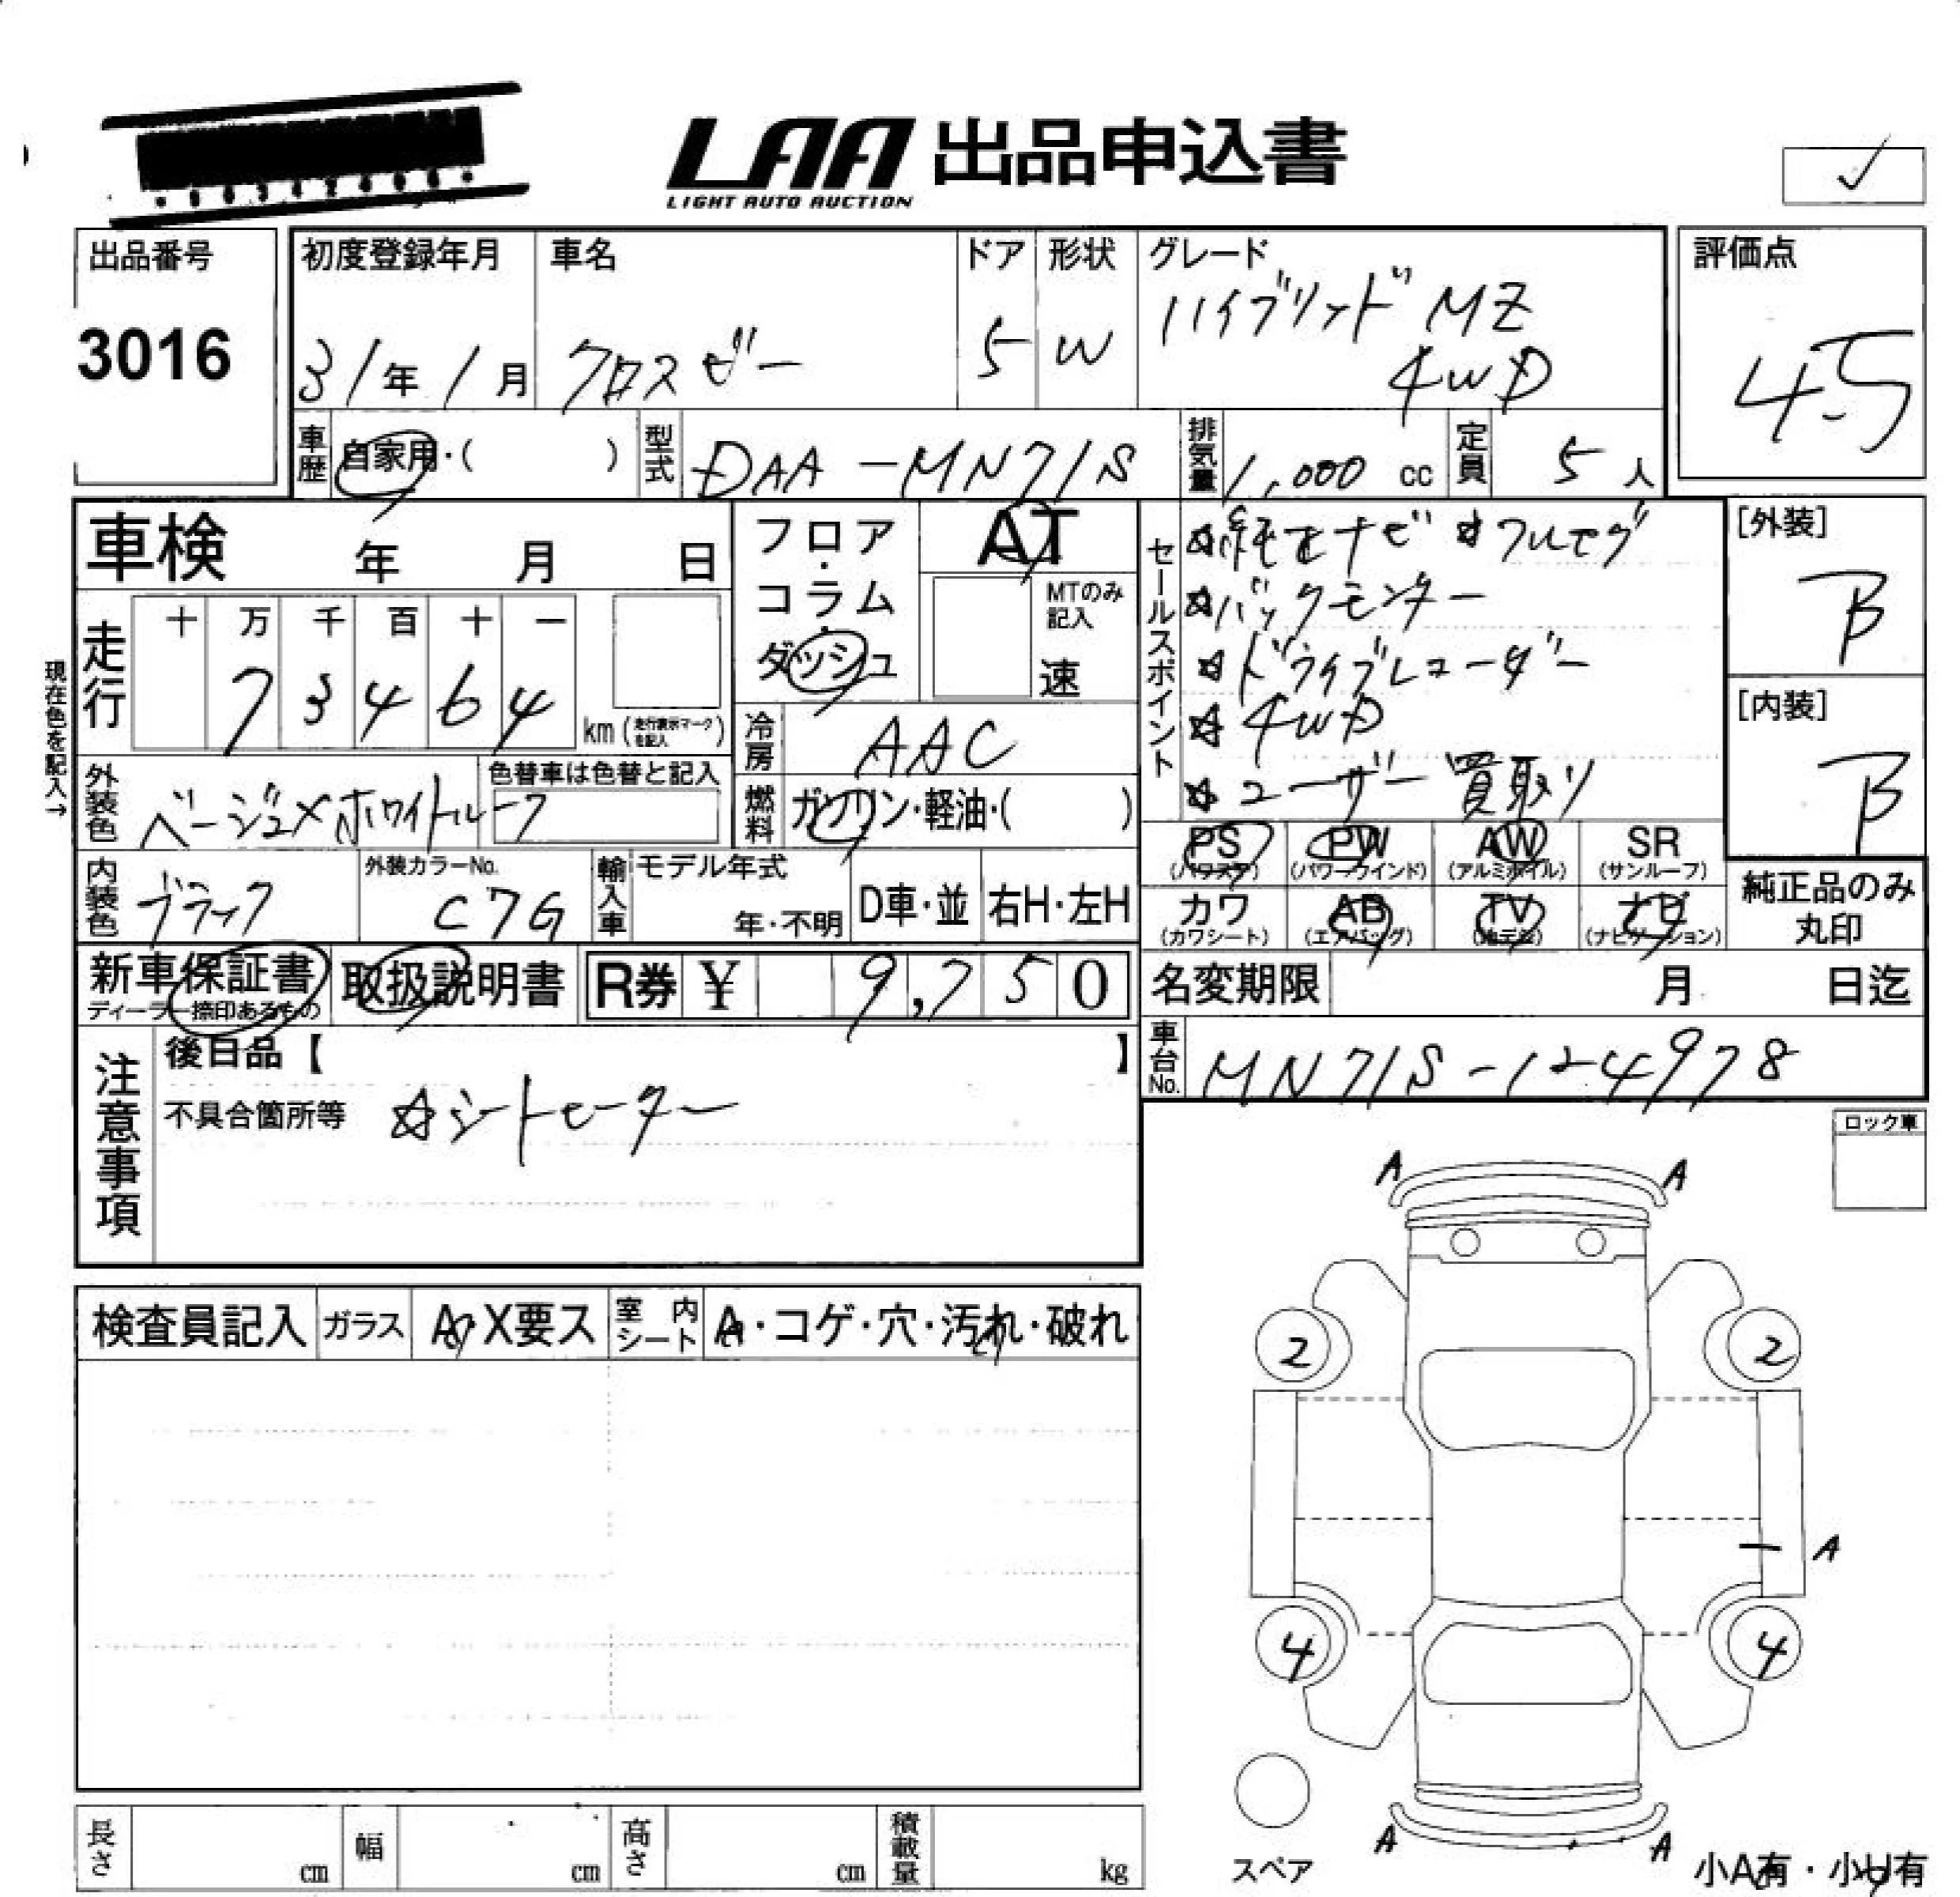 LAA 出品申込書
LIGHT AUTO AUCTION
✓
出品番号
3016
初度登録年月
31年1月
車名
クロスビー
ドア
5
形状
W
グレード
ハイブリッド MZ
4WD
評価点
4.5
車歴
自家用・( )
型式
DAA-MN71S
排気量
1,000 cc
定員
5 人
車検 年 月 日
フロア・コラム・ダッシュ
AT
MTのみ記入
速
セールスポイント
☆純正ナビ ☆フルセグ
☆バックモニター
☆ドライブレコーダー
☆4WD
☆ユーザー買取り
[外装]
B
[内装]
B
現在色を記入→
走行
十 万 千 百 十 一
7 3 4 6 4
km (走行表示マークを記入)
冷房
AAC
外装色
ベージュ×ホワイトルーフ
色替車は色替と記入
燃料
ガソリン・軽油・( )
PS (パワステ)
PW (パワーウインド)
AW (アルミホイル)
SR (サンルーフ)
カワ (カワシート)
AB (エアバッグ)
TV (地デジ)
ナビ (ナビゲーション)
純正品のみ丸印
内装色
ブラック
外装カラーNo.
C7G
輸入車
モデル年式
年・不明
D車・並
右H・左H
新車保証書
ディーラー捺印あるもの
取扱説明書
R券 ¥ 9,750
名変期限 月 日迄
車台No.
MN71S-124978
注意事項
後日品【 】
不具合箇所等 ☆シートヒーター
ロック車
検査員記入
ガラス
A・X要ス
室内シート
A・コゲ・穴・汚れ・破れ
A A
2 2
A
4 4
A A
スペア
小A有・小U有
長さ cm
幅 cm
高さ cm
積載量 kg